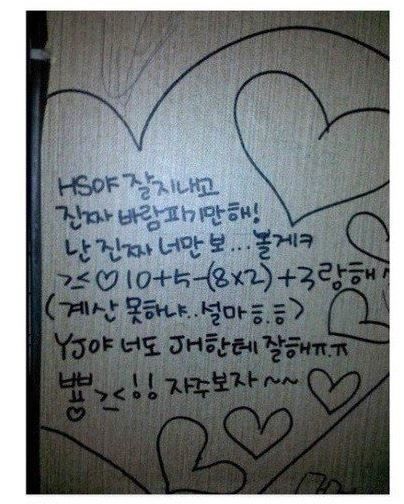 HS야 잘지내고
진짜 바람피기만해!
난 진짜 너만 보...볼게ㅋ
>.< ♡ 10+5-(8x2)+3랑해^
(계산 못하냐..설마ㅎ.ㅎ)
YJ야 너도 JH한테 잘해ㅠ.ㅠ
뿅 >.< !! 자주보자~~